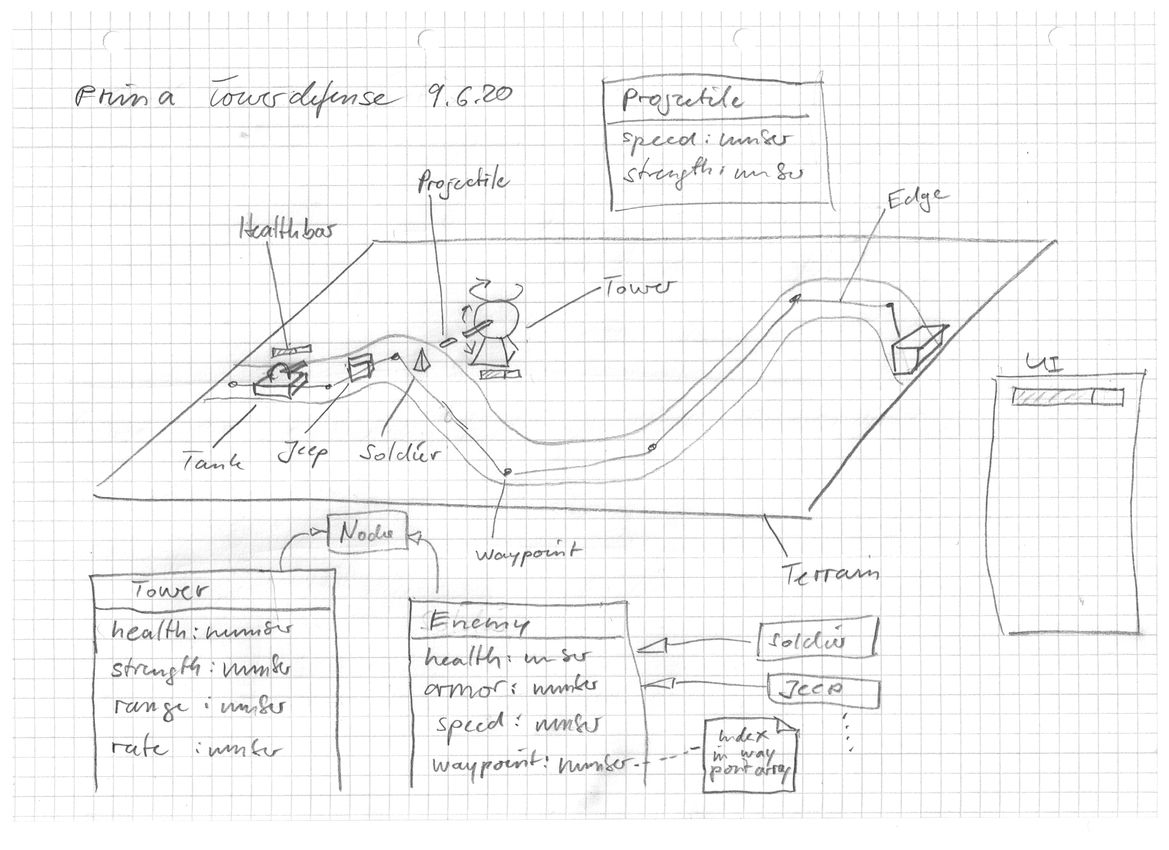 Prima Towerdefense 9.6.20
Projectile
speed: number
strength: number
Projectile
Edge
Healthbar
Tower
UI
Tank
Jeep
Soldier
waypoint
Terrain
Node
Tower
health: number
strength: number
range: number
rate: number
Enemy
health: number
armor: number
speed: number
waypoint: number
Soldier
Jeep
index
in way
point array